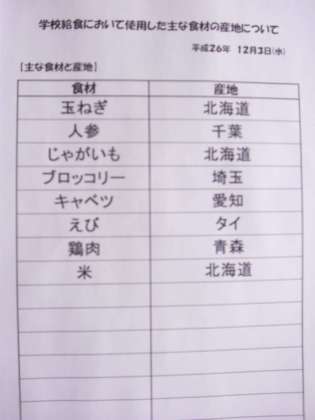 学校給食において使用した主な食材の産地について
平成26年 12月3日(水)
[主な食材と産地]
食材 産地
玉ねぎ 北海道
人参 千葉
じゃがいも 北海道
ブロッコリー 埼玉
キャベツ 愛知
えび タイ
鶏肉 青森
米 北海道